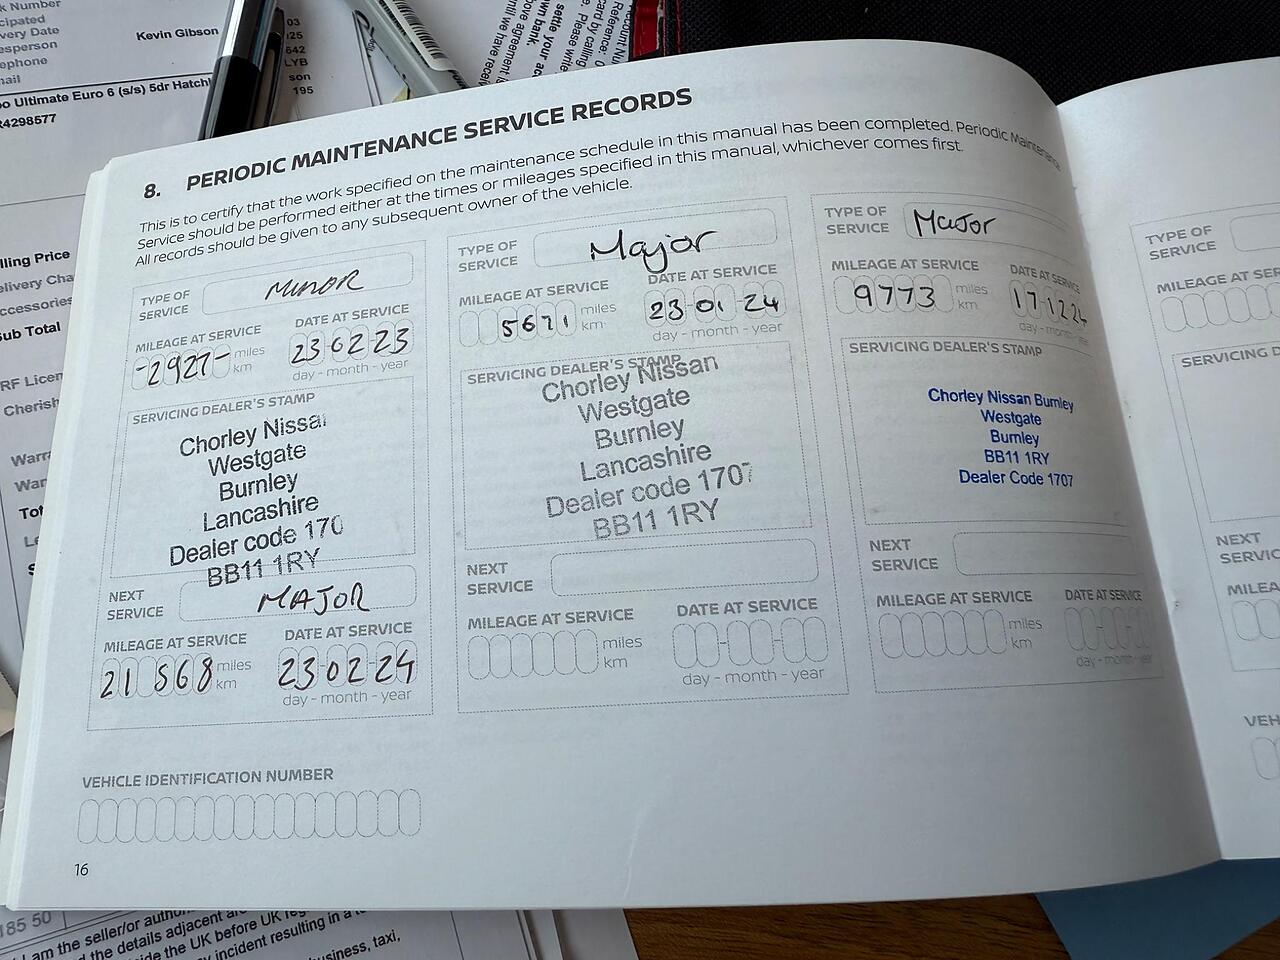 k Number
cipated
very Date
esperson
ephone
nail
Kevin Gibson
03
/25
642
LYB
son
195
oo Ultimate Euro 6 (s/s) 5dr Hatchb
R4298577
lling Price
elivery Cha
ccessories
ub Total
RF Licen
Cherish
Warra
War
Tot
count Nu
Reference: 0
card by calling
Please write
settle your ac
own bank.
ove agreement
until we have recei
8. PERIODIC MAINTENANCE SERVICE RECORDS
This is to certify that the work specified on the maintenance schedule in this manual has been completed. Periodic Maintenance
Service should be performed either at the times or mileages specified in this manual, whichever comes first.
All records should be given to any subsequent owner of the vehicle.
TYPE OF
SERVICE
MINOR
MILEAGE AT SERVICE
-2927-
miles
km
DATE AT SERVICE
23 02 23
day - month - year
SERVICING DEALER'S STAMP
Chorley Nissa
Westgate
Burnley
Lancashire
Dealer code 170
BB11 1RY
NEXT
SERVICE
MAJOR
MILEAGE AT SERVICE
21 568
miles
km
DATE AT SERVICE
23 02 24
day - month - year
TYPE OF
SERVICE
Major
MILEAGE AT SERVICE
5671
miles
km
DATE AT SERVICE
23-01-24
day - month - year
SERVICING DEALER'S STAMP
Chorley Nissan
Westgate
Burnley
Lancashire
Dealer code 1707
BB11 1RY
NEXT
SERVICE
MILEAGE AT SERVICE
miles
km
DATE AT SERVICE
day - month - year
TYPE OF
SERVICE
Major
MILEAGE AT SERVICE
9773
miles
km
DATE AT SERVICE
17 12 24
day - month - year
SERVICING DEALER'S STAMP
Chorley Nissan Burnley
Westgate
Burnley
BB11 1RY
Dealer Code 1707
NEXT
SERVICE
MILEAGE AT SERVICE
miles
km
DATE AT SERVICE
day - month - year
TYPE OF
SERVICE
MILEAGE AT SER
SERVICING D
NEXT
SERVIC
MILEA
VEH
VEHICLE IDENTIFICATION NUMBER
16
185 50
I am the seller/or author
d the details adjacent are
ide the UK before UK reg
y incident resulting in a
business, taxi,